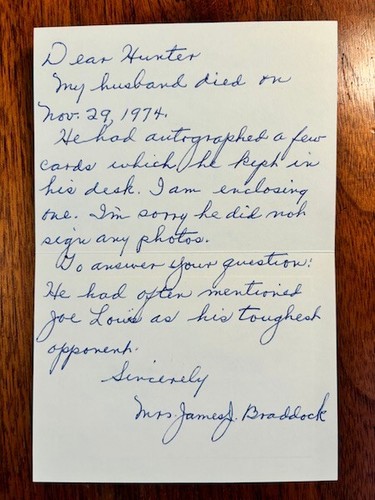 Dear Hunter
My husband died on
Nov. 29, 1974.
He had autographed a few
cards which he kept in
his desk. I am enclosing
one. I'm sorry he did not
sign any photos.
To answer your question:
He had often mentioned
Joe Louis as his toughest
opponent.
Sincerely
Mrs. James J. Braddock